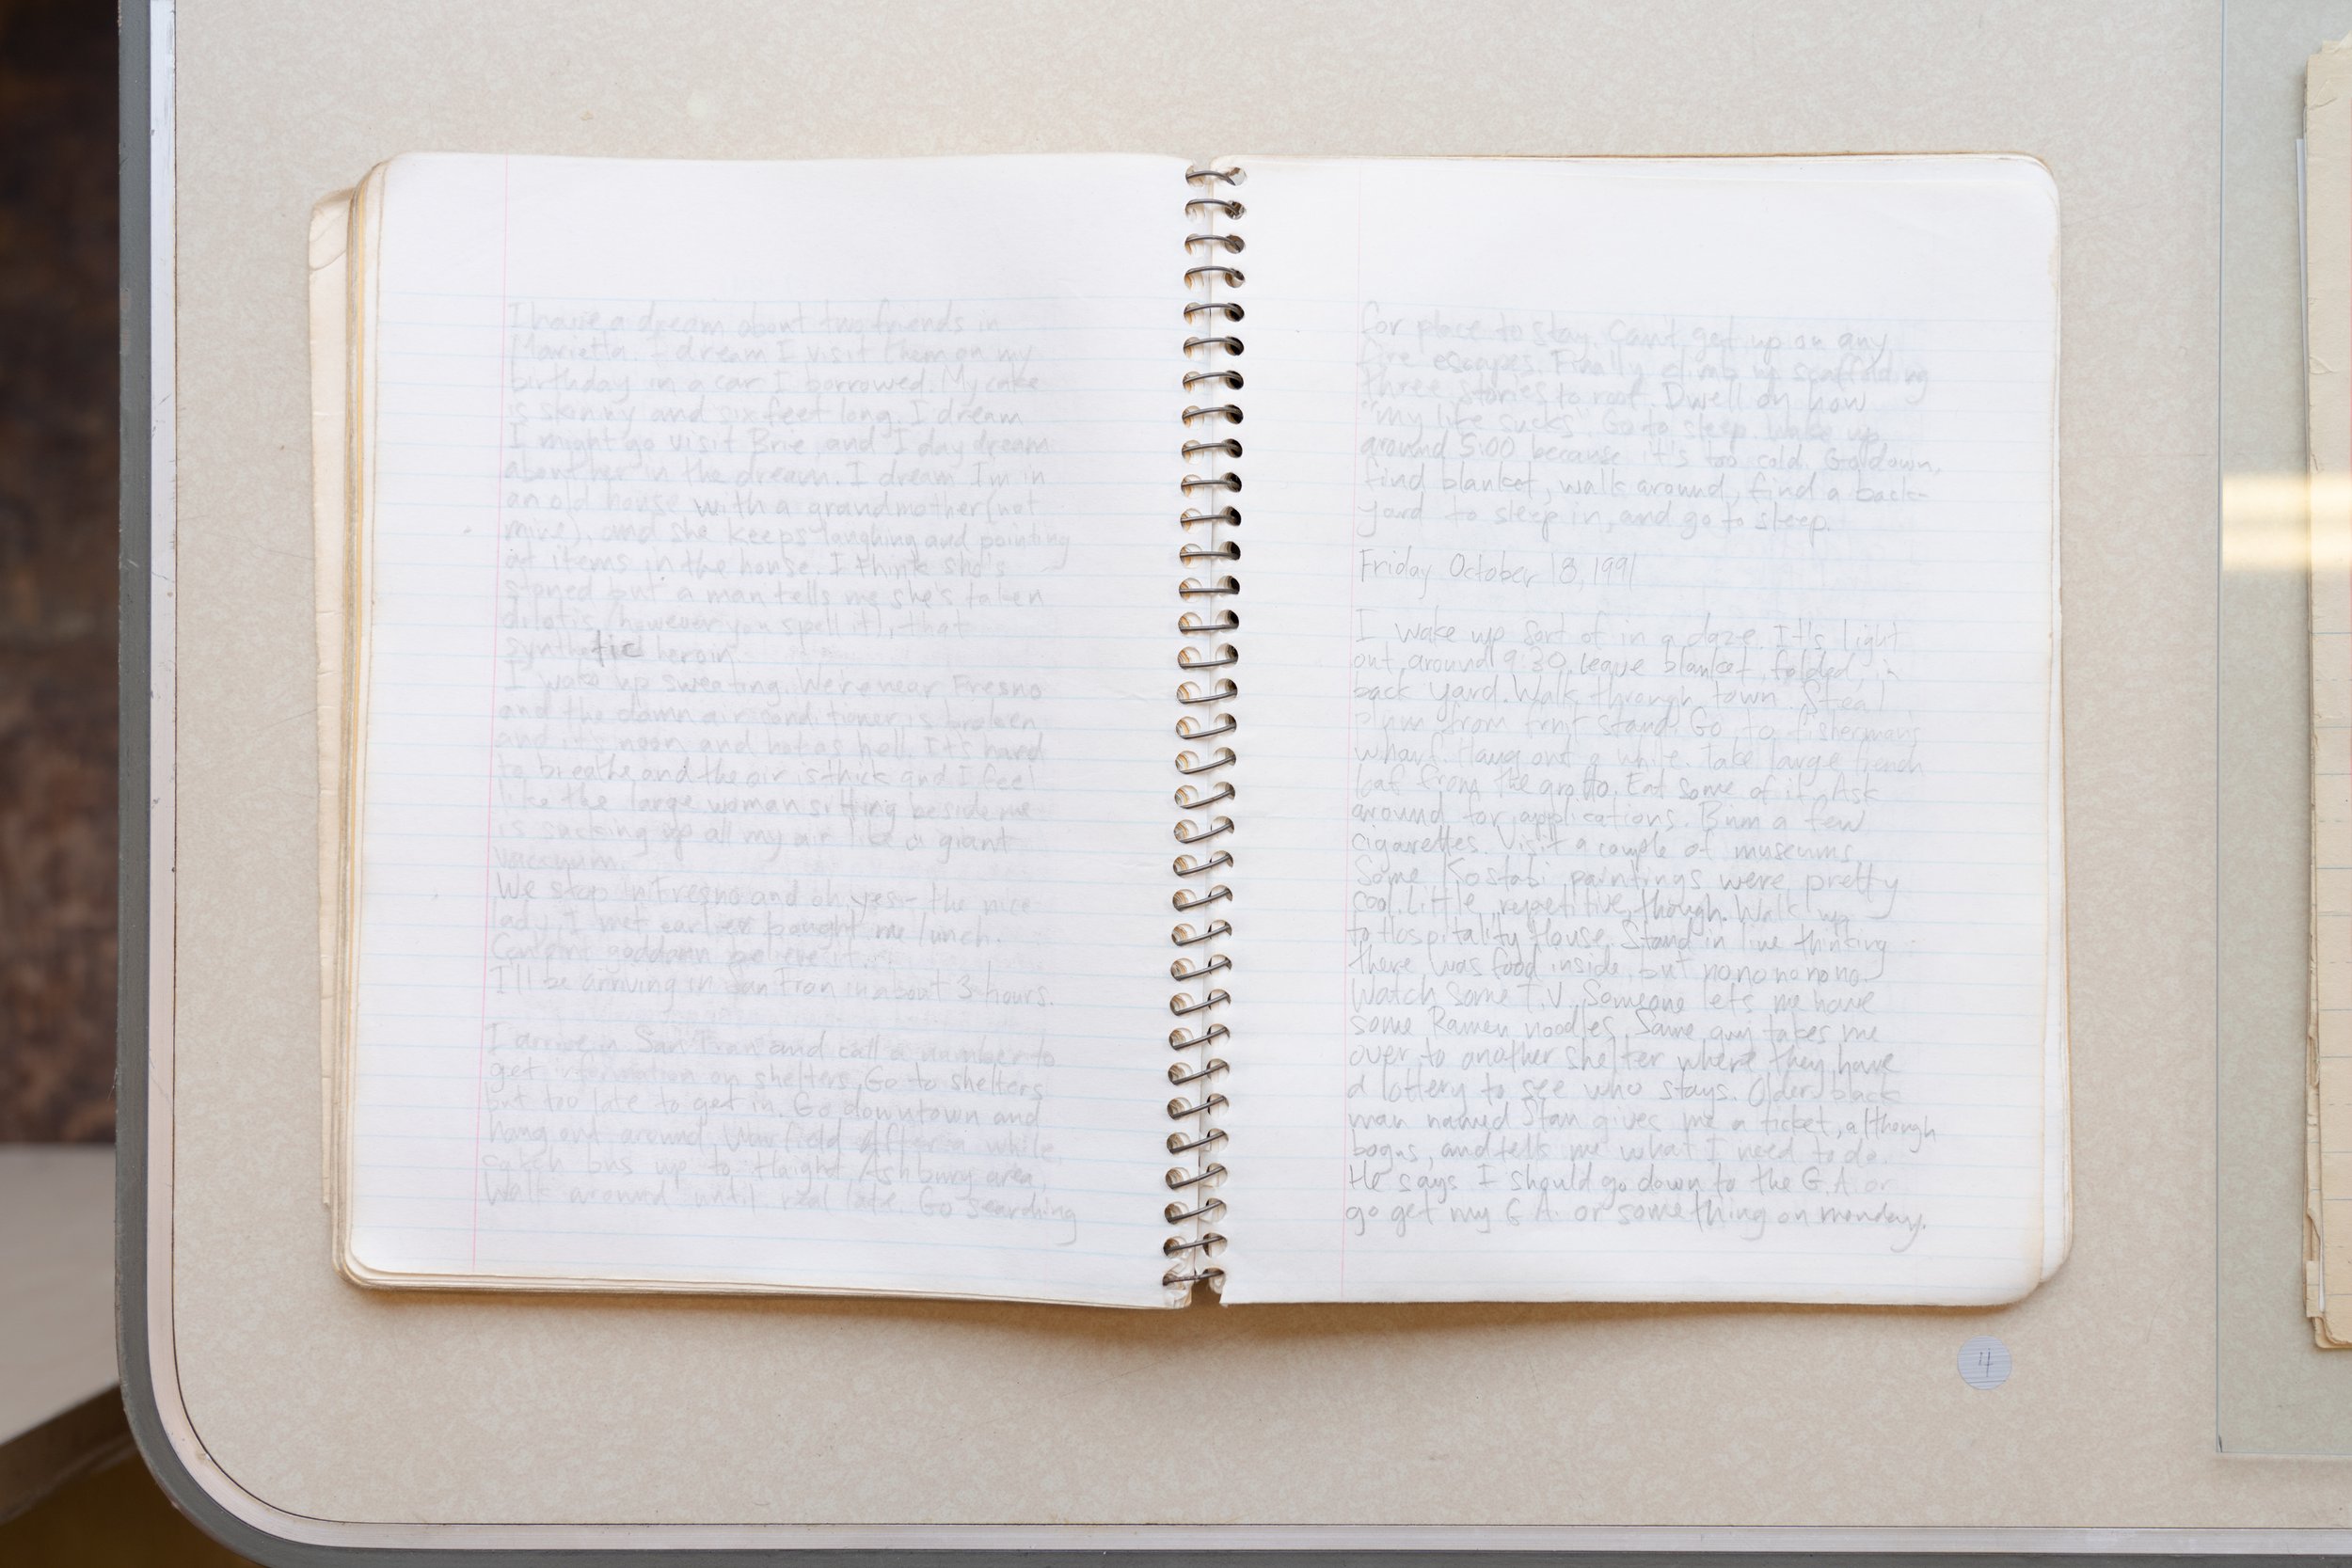 I have a dream about two friends in
Marietta. I dream I visit them on my
birthday in a car I borrowed. My cake
is skinny and six feet long. I dream
I might go visit Brie, and I day dream
about her in the dream. I dream I'm in
an old house with a grandmother (not
mine), and she keeps laughing and pointing
at items in the house. I think she's
stoned but a man tells me she's taken
however you spell it), that
synthetic heroin.
I wake up sweating. We're near Fresno
and the damn air conditioner is broken
and it's noon and hot as hell. It's hard
to breathe and the air is thick and I feel
like the large woman sitting beside me
is sucking up all my air like a giant
vaccyum.
We stop in Fresno and oh yes - the nice
lady I met earlier bought me lunch.
goddamn believe it.
I'll be arriving in San Fran in about 3 hours.
I arrive in San Fran and call a number to
get information on shelters. Go to shelters
but too late to get in. Go downtown and
hang out around Warfield. After a while
catch bus up to Haight Ashbury area.
Walk around until real late. Go searching
for place to stay. Can't get up on any
fire escapes. Finally climb up scaffolding
three stories to roof. Dwell on how
"my life sucks". Go to sleep. Wake up
around 5:00 because it's too cold. Go down,
find blanket, walk around, find a back-
yard to sleep in, and go to sleep.
Friday October 18, 1991
I wake up sort of in a daze. It's light
out, around 9:30. leave blanket, folded, in
back yard. Walk through town. Steal
plum from fruit stand. Go to fisherman's
wharf. Hang out a while. Take large french
loaf from the grotto. Eat some of it. Ask
around for applications. Bum a few
cigarettes. Visit a couple of museums.
Some Kostabi paintings were pretty
cool. Little repetitive, though. Walk up
to Hospitality House. Stand in line thinking
there was food inside, but no no no no no.
Watch some T.V. Someone lets me have
some Ramen noodles. Same guy takes me
over to another shelter where they have
a lottery to see who stays. Older black
man named Stan gives me a ticket, although
bogus, and tells me what I need to do.
He says I should go down to the G.A. or
go get my G.A. or something on monday.
4